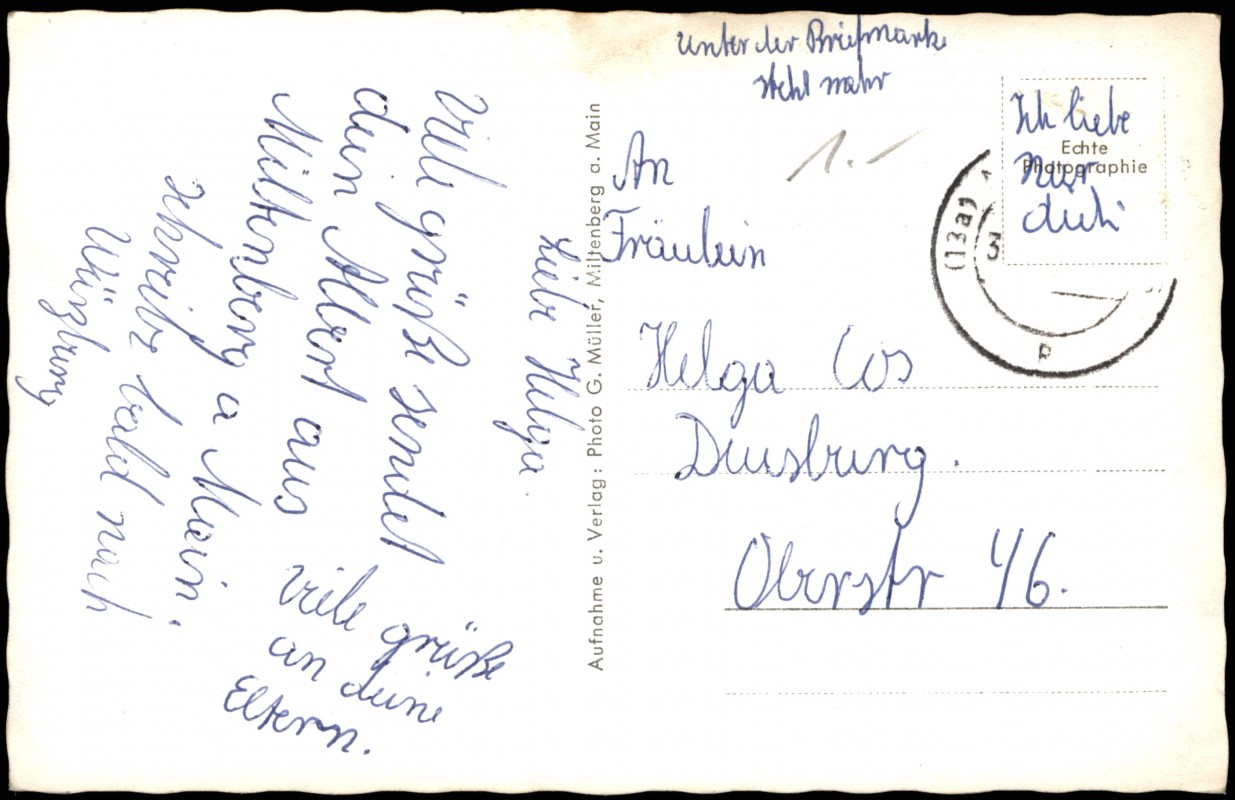 Liebe Helga.
Viele grüße sendet
dein Albert aus
Miltenberg a Main.
schreibe bald nach
Würzburg
viele grüße
an deine
Eltern.
Aufnahme u. Verlag: Photo G. Müller, Miltenberg a. Main
Unter der Briefmarke
steht mehr
Ich liebe
nur
dich
Echte
Photographie
1.-
(13a)
3
An
Fräulein
Helga Cos
Duisburg.
Oberstr 46.